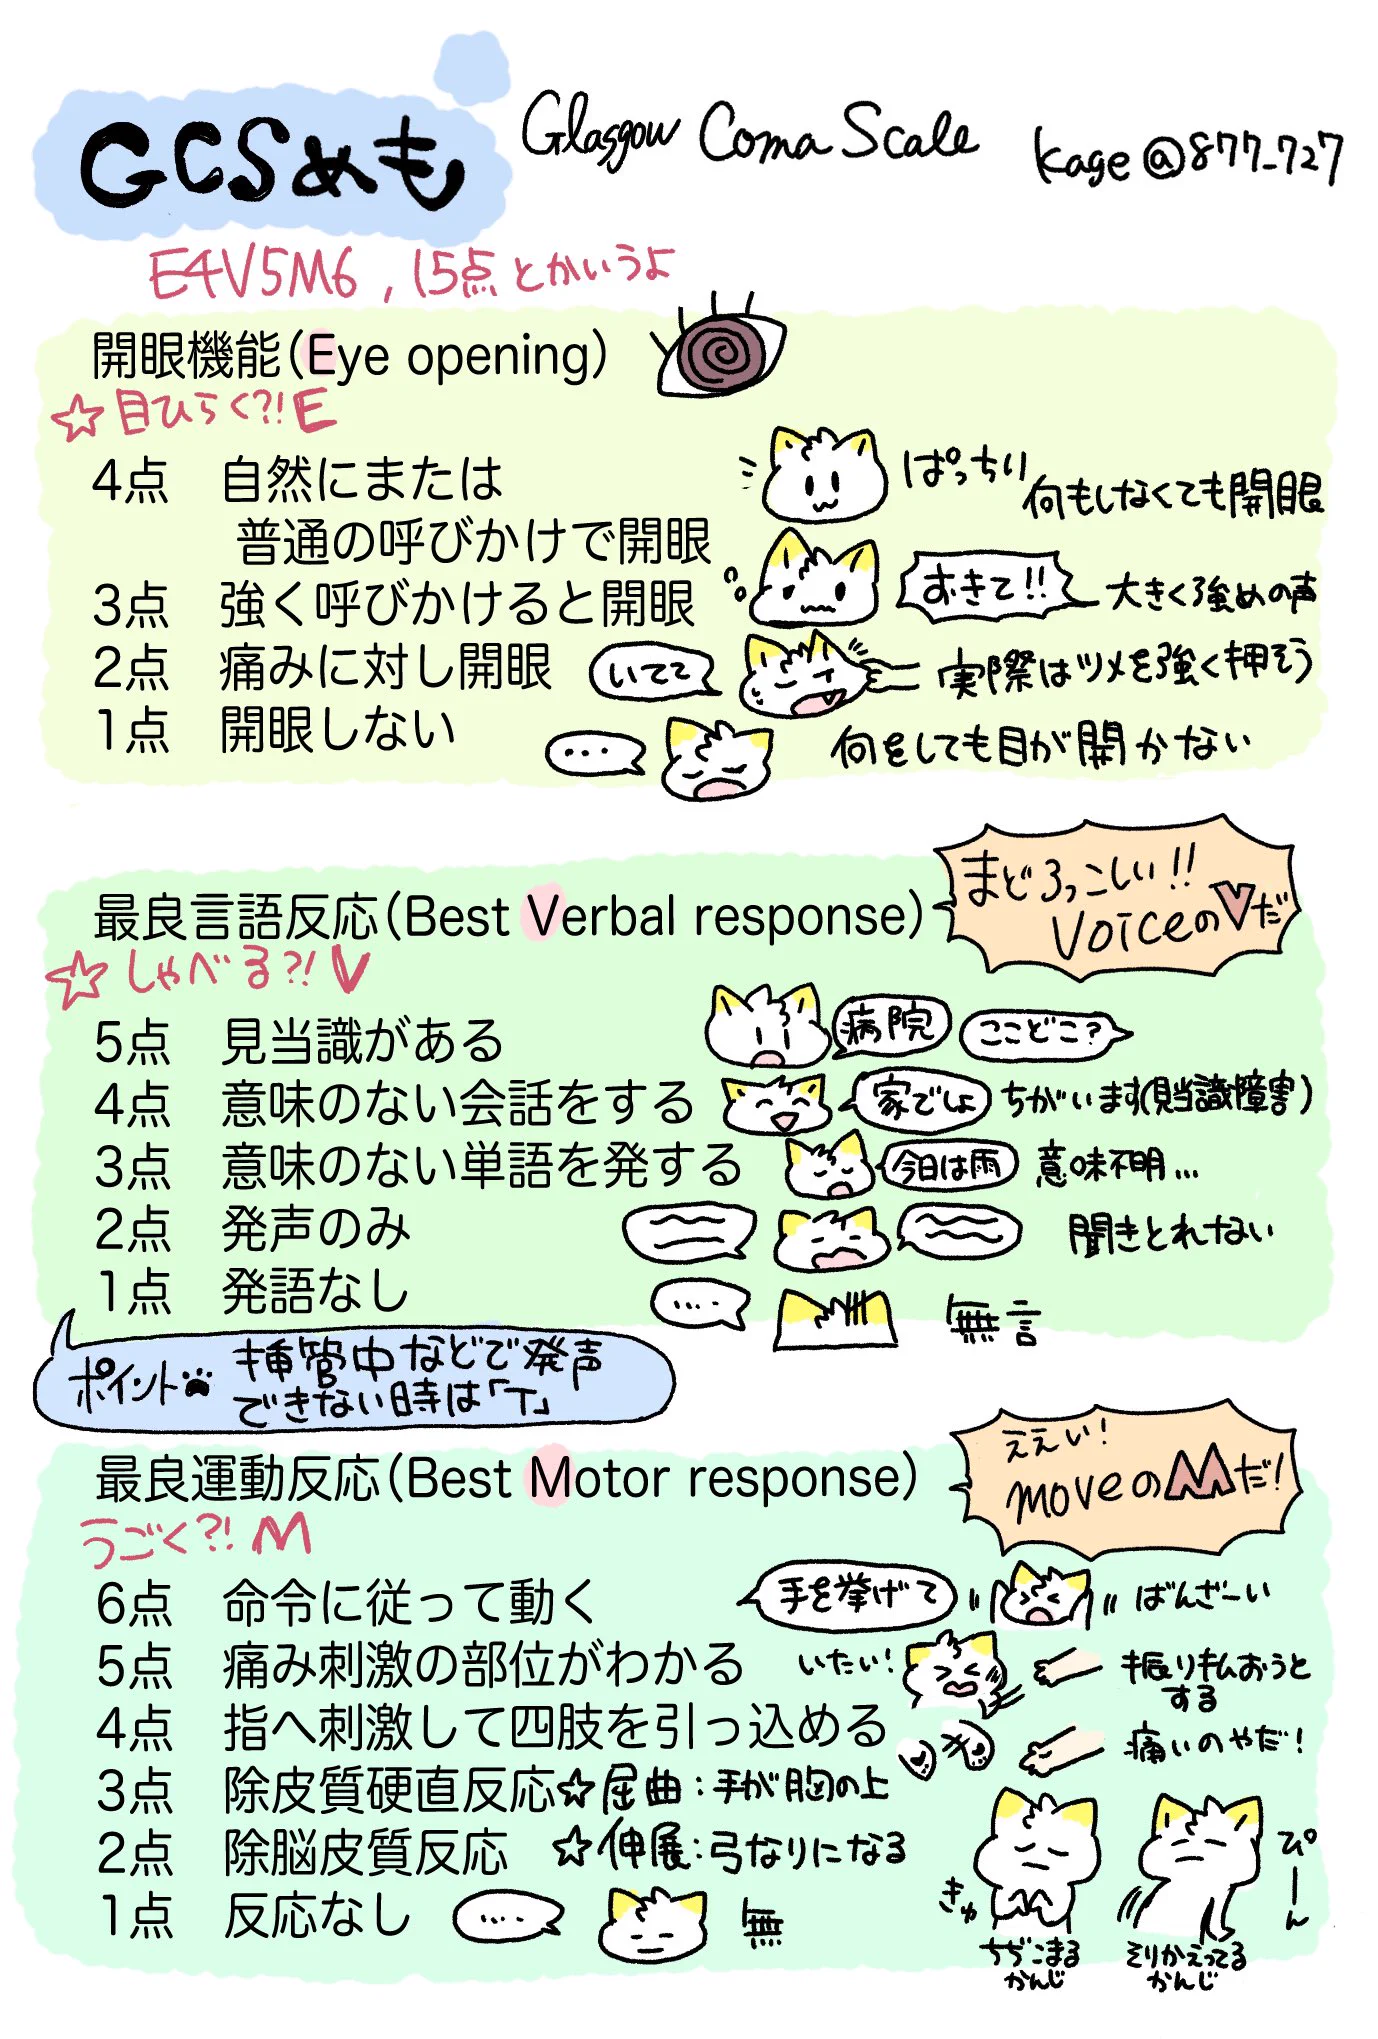 GCSめも
Glasgow Coma Scale
Kage@877_727
E4V5M6,15点とかいうよ
開眼機能(Eye opening)
☆目ひらく?!E
4点 自然にまたは
普通の呼びかけで開眼
ぱっちり 何もしなくても開眼
3点 強く呼びかけると開眼
おきて!! 大きく強めの声
2点 痛みに対し開眼
いてて 実際はツメを強く押そう
1点 開眼しない
... 何をしても目が開かない
最良言語反応(Best Verbal response)
まどろっこしい!!
VoiceのVだ
☆しゃべる?!V
5点 見当識がある
病院 ここどこ?
4点 意味のない会話をする
家でしょ ちがいます(見当識障害)
3点 意味のない単語を発する
今日は雨 意味不明...
2点 発声のみ
聞きとれない
1点 発語なし
.... 無言
ポイント 挿管中などで発声
できない時は「T」
最良運動反応(Best Motor response)
ええい!
moveのMだ!
うごく?!M
6点 命令に従って動く
手を挙げて ばんざーい
5点 痛み刺激の部位がわかる
いたい! 振り払おうと
する
4点 指へ刺激して四肢を引っ込める
痛いのやだ!
3点 除皮質硬直反応☆屈曲:手が胸の上
2点 除脳皮質反応 ☆伸展:弓なりになる
きゅ
ちぢこまる
かんじ
ぴーん
そりかえってる
かんじ
1点 反応なし
.... 無